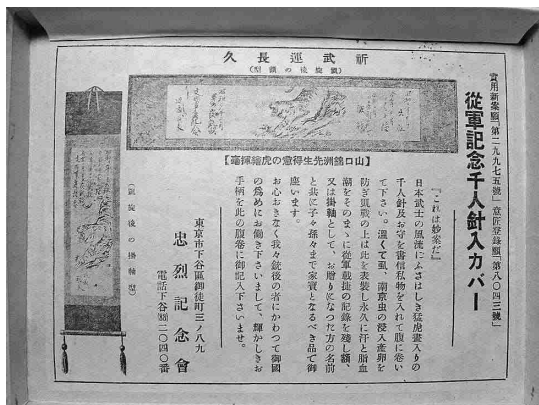 實用新案願「第二九九七五號」意匠登錄願「第八〇四三號」
從軍記念千人針入カバー
祈武運長久
(凱旋後の額型)
【山口錦洲先生得意の虎繪揮毫】
『これは妙案だ』
日本武士の風流にふさはしき猛虎畫入りの
千人針及お守を書信私物を入れて腹に巻い
て下さい。溫くて虱、南京虫の浸入產卵を
防ぎ凱戰の上は此を表裝し永久に汗と脂血
潮をそのまゝに從軍戰捷の記錄を殘し額、
又は掛軸として、お贈りになつた方の名前
と共に子々孫々まで家寶となるべき品で御
座います。
お心おきなく我々銃後の者にかわつて御國
の爲めにお働き下さいまして、輝かしきお
手柄を此の腹卷に御記入下さいませ。
東京市下谷區御徒町三ノ八九
忠烈記念會
電話下谷二〇四〇番
(凱旋後の掛軸型)